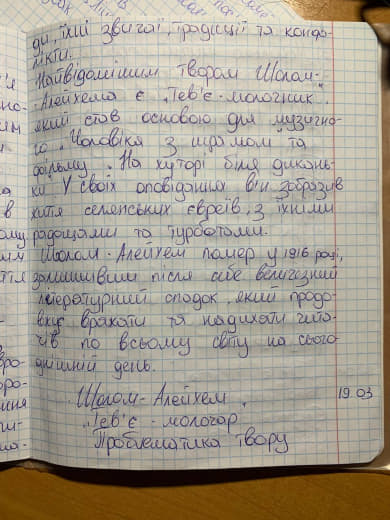 ди, їхні звичаї, традиції та конфлікти.
Найвідомішим твором Шолом-
Алейхема є „Тев'є-молочник",
який став основою для музично-
го „Чоловіка з шрамом" та
фільму „На хуторі біля дикань-
ки". У своїх оповіданнях він зобразив
життя селянських євреїв, з їхніми
радощами та турботами.
Шолом-Алейхем помер у 1916 році,
залишивши після себе величезний
літературний спадок, який продо-
вжує вражати та надихати чита-
чів по всьому світу на сього-
днішній день.
19.03
Шолом-Алейхем
„Тев'є-молочар
Проблематика твору